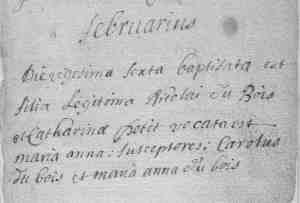 februarius
Die vigesima sexta baptisata est
filia legitima Nicolai du Bois
et Catharinæ petit vocata est
maria anna: susceptores: Carolus
du bois et maria anna du bois